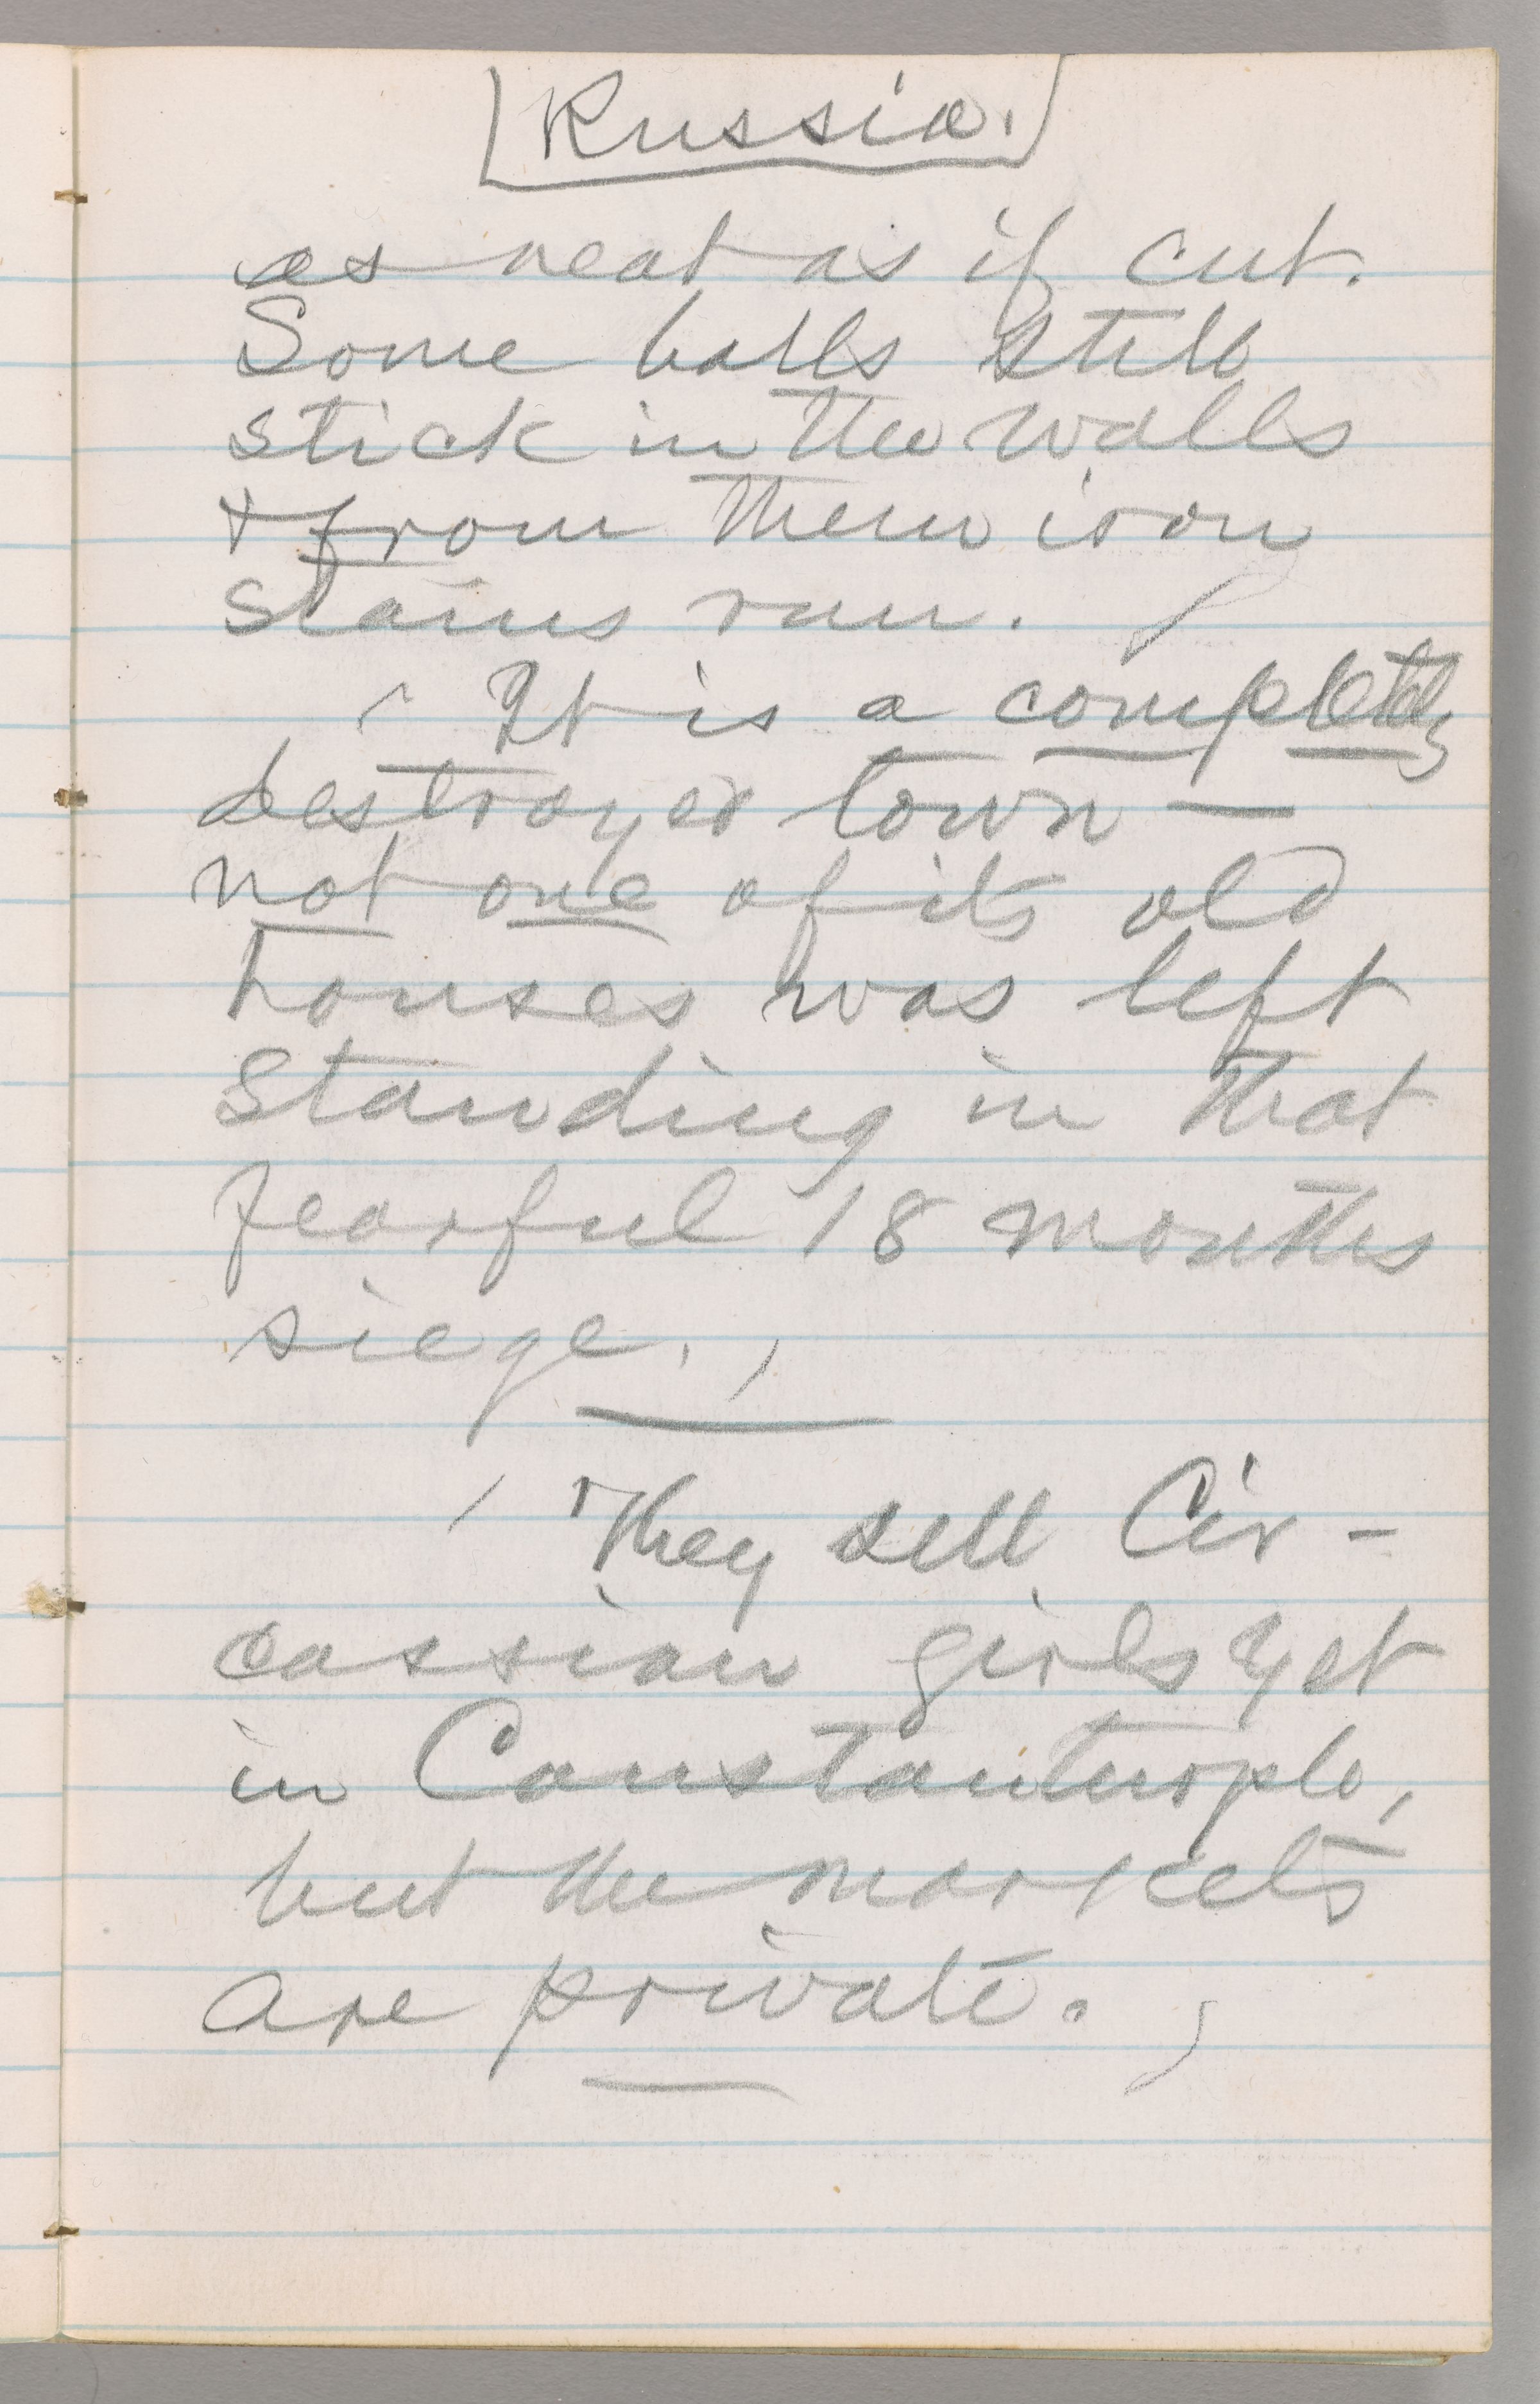 Russia.
as neat as if cut.
Some balls still
stick in the walls
& from them iron
stains run.
It is a completely
destroyed town —
not one of its old
houses was left
standing in that
fearful 18 months
siege.
They sell Cir-
cassian girls yet
in Constantinople,
but the markets
are private.